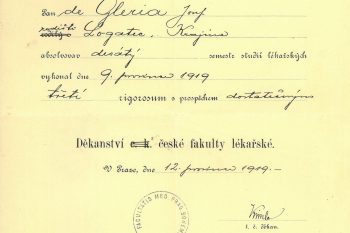 Pan de Gleria Josef
rodiště Logatec, Krajina
absolvovav desátý semestr studií lékařských
vykonal dne 9. prosince 1919
třetí rigorosum s prospěchem dostatečným
Děkanství c. k. české fakulty lékařské.
V Praze, dne 12. prosince 1919.
t. č. děkan.